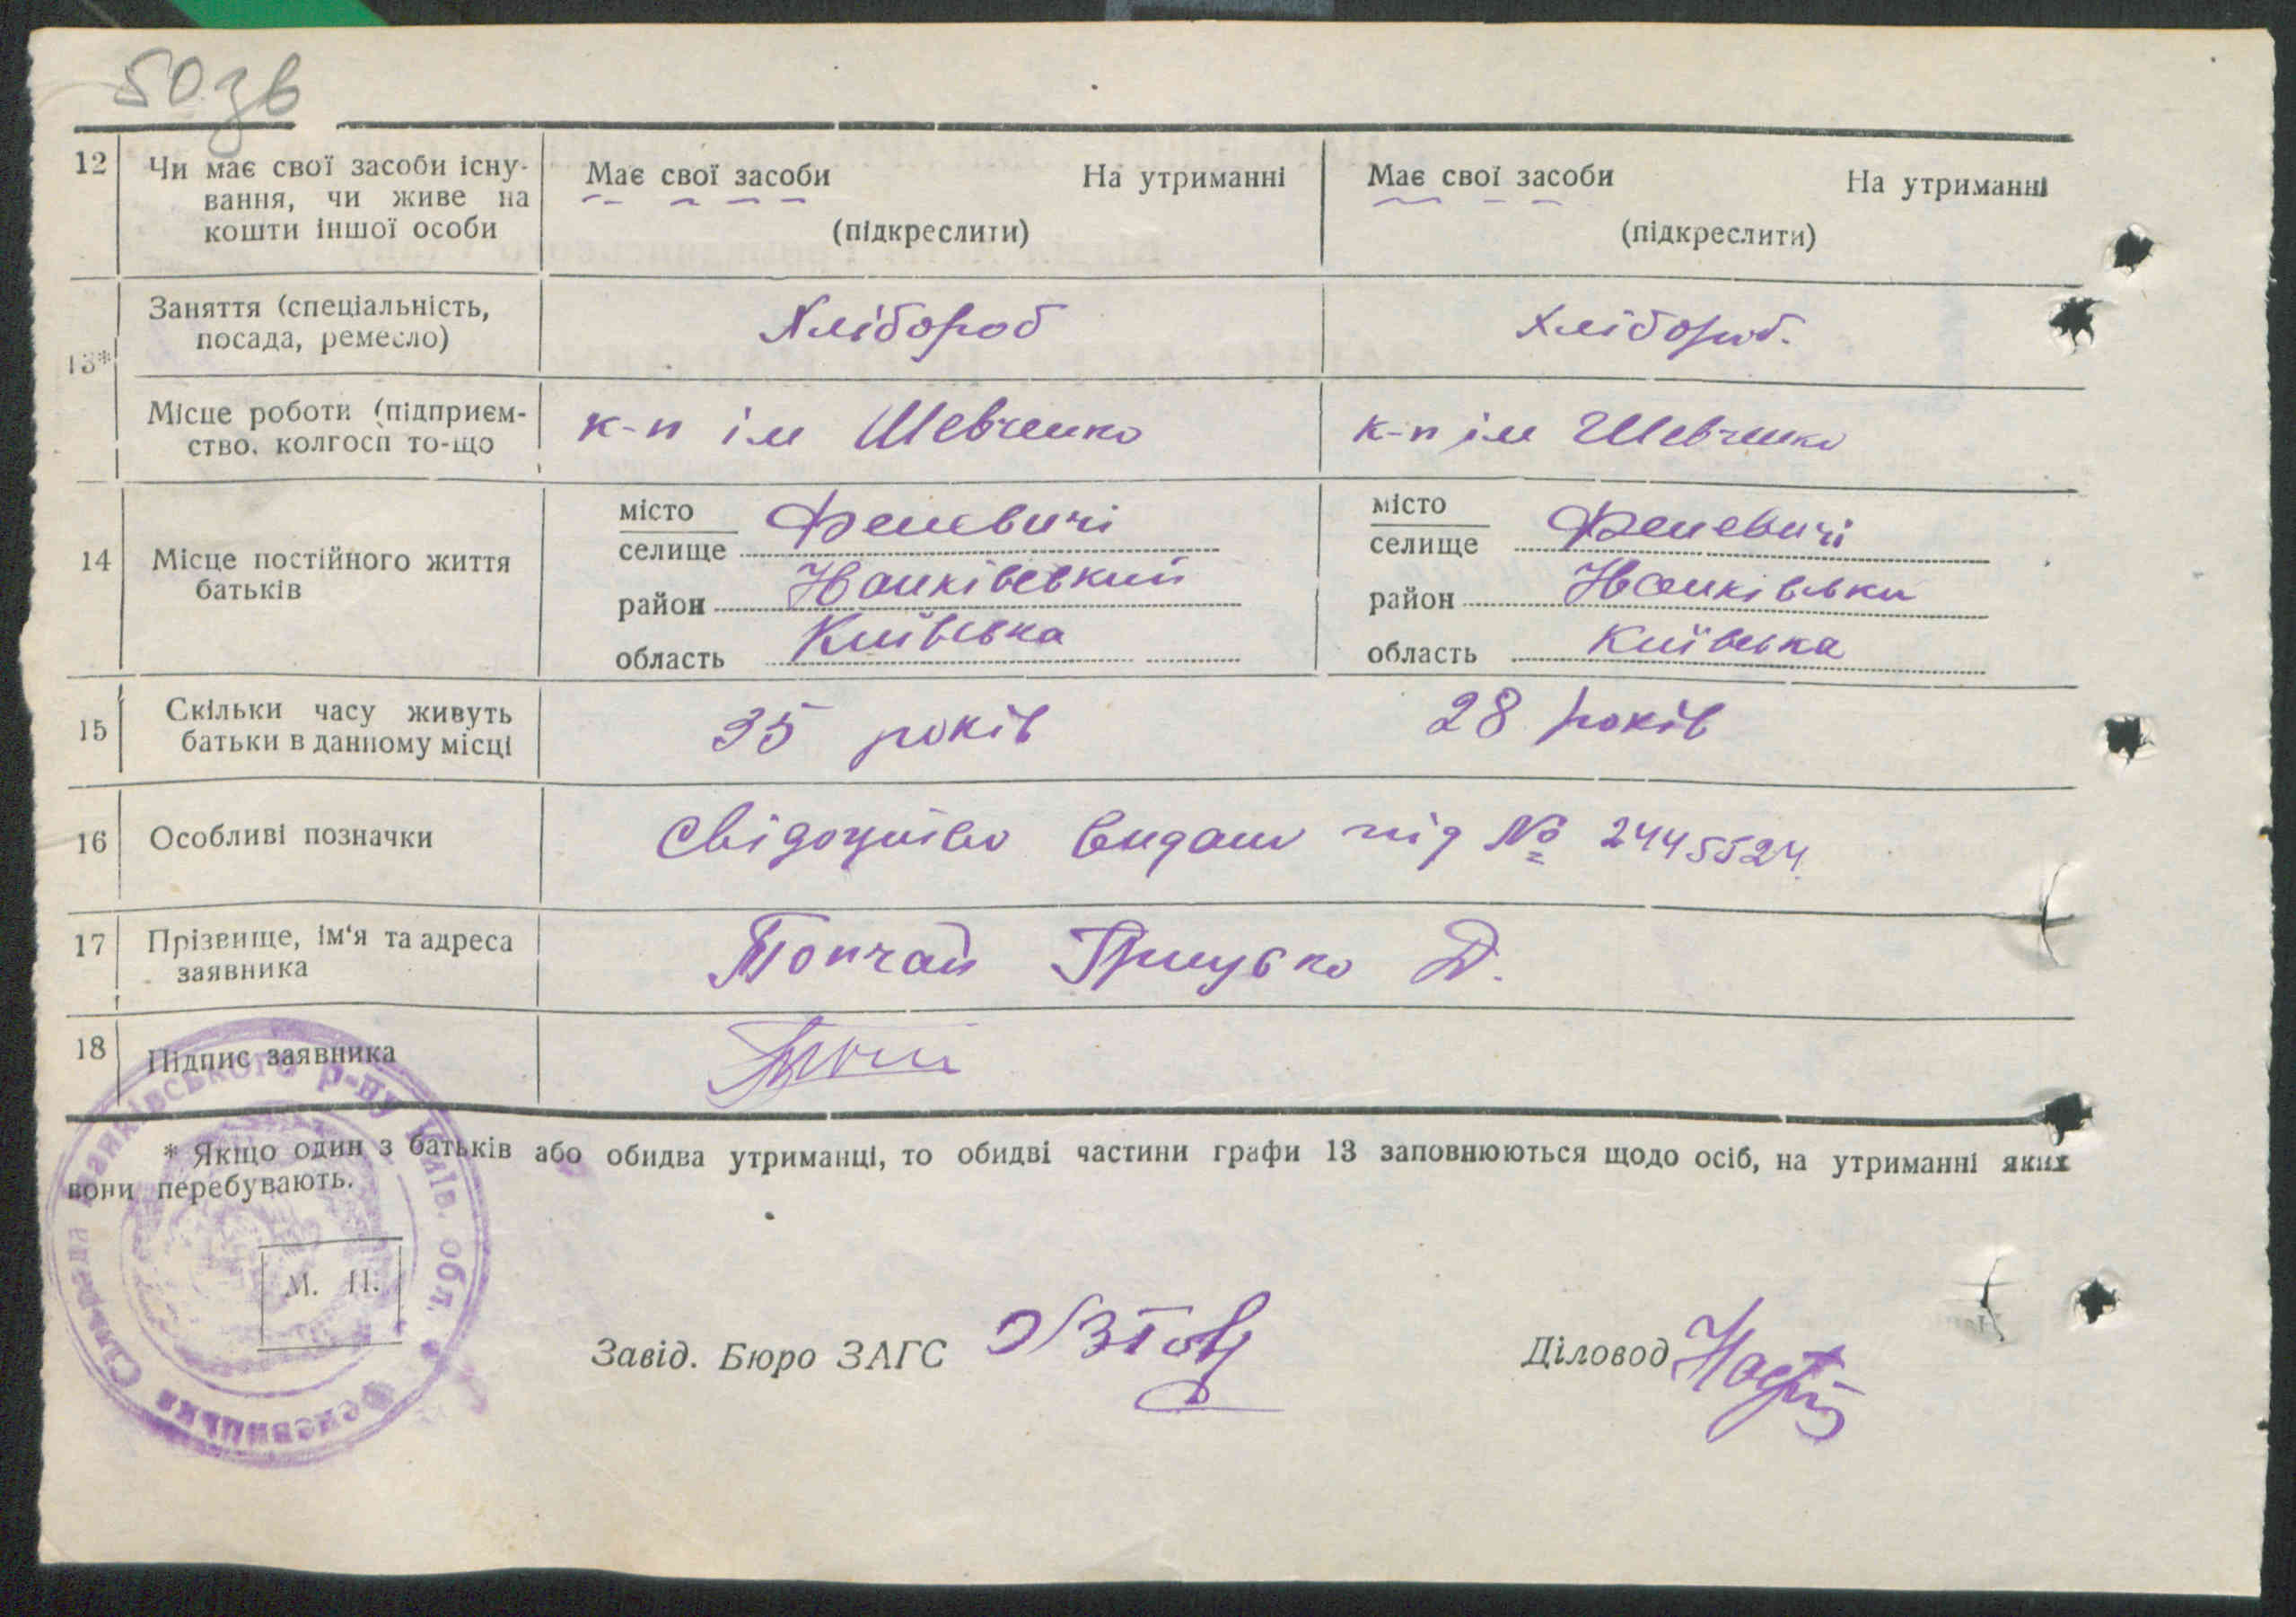 50 зв
12 Чи має свої засоби існу-
вання, чи живе на
кошти іншої особи
Має свої засоби На утриманні
(підкреслити)
Має свої засоби На утриманні
(підкреслити)
13*
Заняття (спеціальність,
посада, ремесло)
Хлібороб
Хлібороб.
Місце роботи (підприєм-
ство, колгосп то-що
к-п ім Шевченко
к-п ім Шевченко
14 Місце постійного життя
батьків
місто
селище Феневичі
район Іванківський
область Київська
місто
селище Феневичі
район Іванківськи
область Київська
15 Скільки часу живуть
батьки в данному місці
35 років
28 років
16 Особливі позначки
Свідоцтво видано під № 2445524
17 Прізвище, ім'я та адреса
заявника
Топчай Грицько Д.
18 Підпис заявника
* Якщо один з батьків або обидва утриманці, то обидві частини графи 13 заповнюються щодо осіб, на утриманні яких
вони перебувають.
М. П.
Феневицька Сільрада Іванківського р-ну Київ. обл.
Завід. Бюро ЗАГС
Діловод